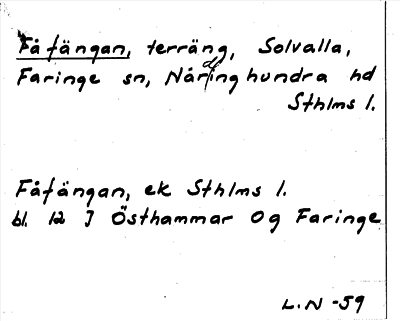 Fåfängan, terräng, Solvalla,
Faringe sn, Närdinghundra hd
Sthlms l.
Fåfängan, ek Sthlms l.
bl. 12 J Östhammar og Faringe
L.N -59